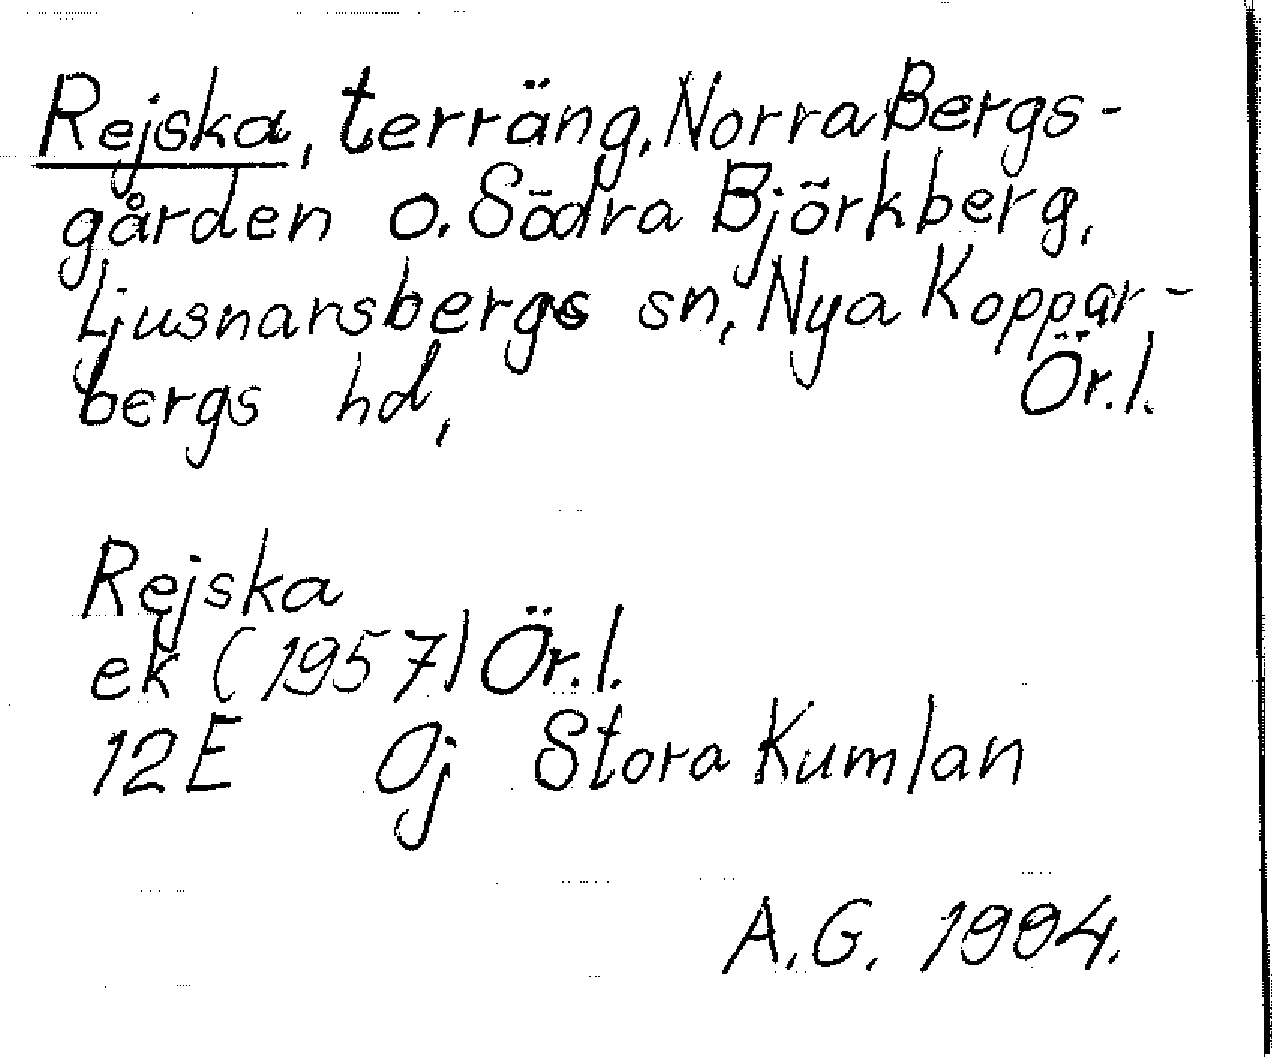 Rejska, terräng, Norra Bergs-
gården o. Södra Björkberg,
Ljusnarsbergs sn, Nya Koppar-
bergs hd, Ör.l.
Rejska
ek (1957) Ör.l.
12E 0j Stora Kumlan
A.G. 1994.